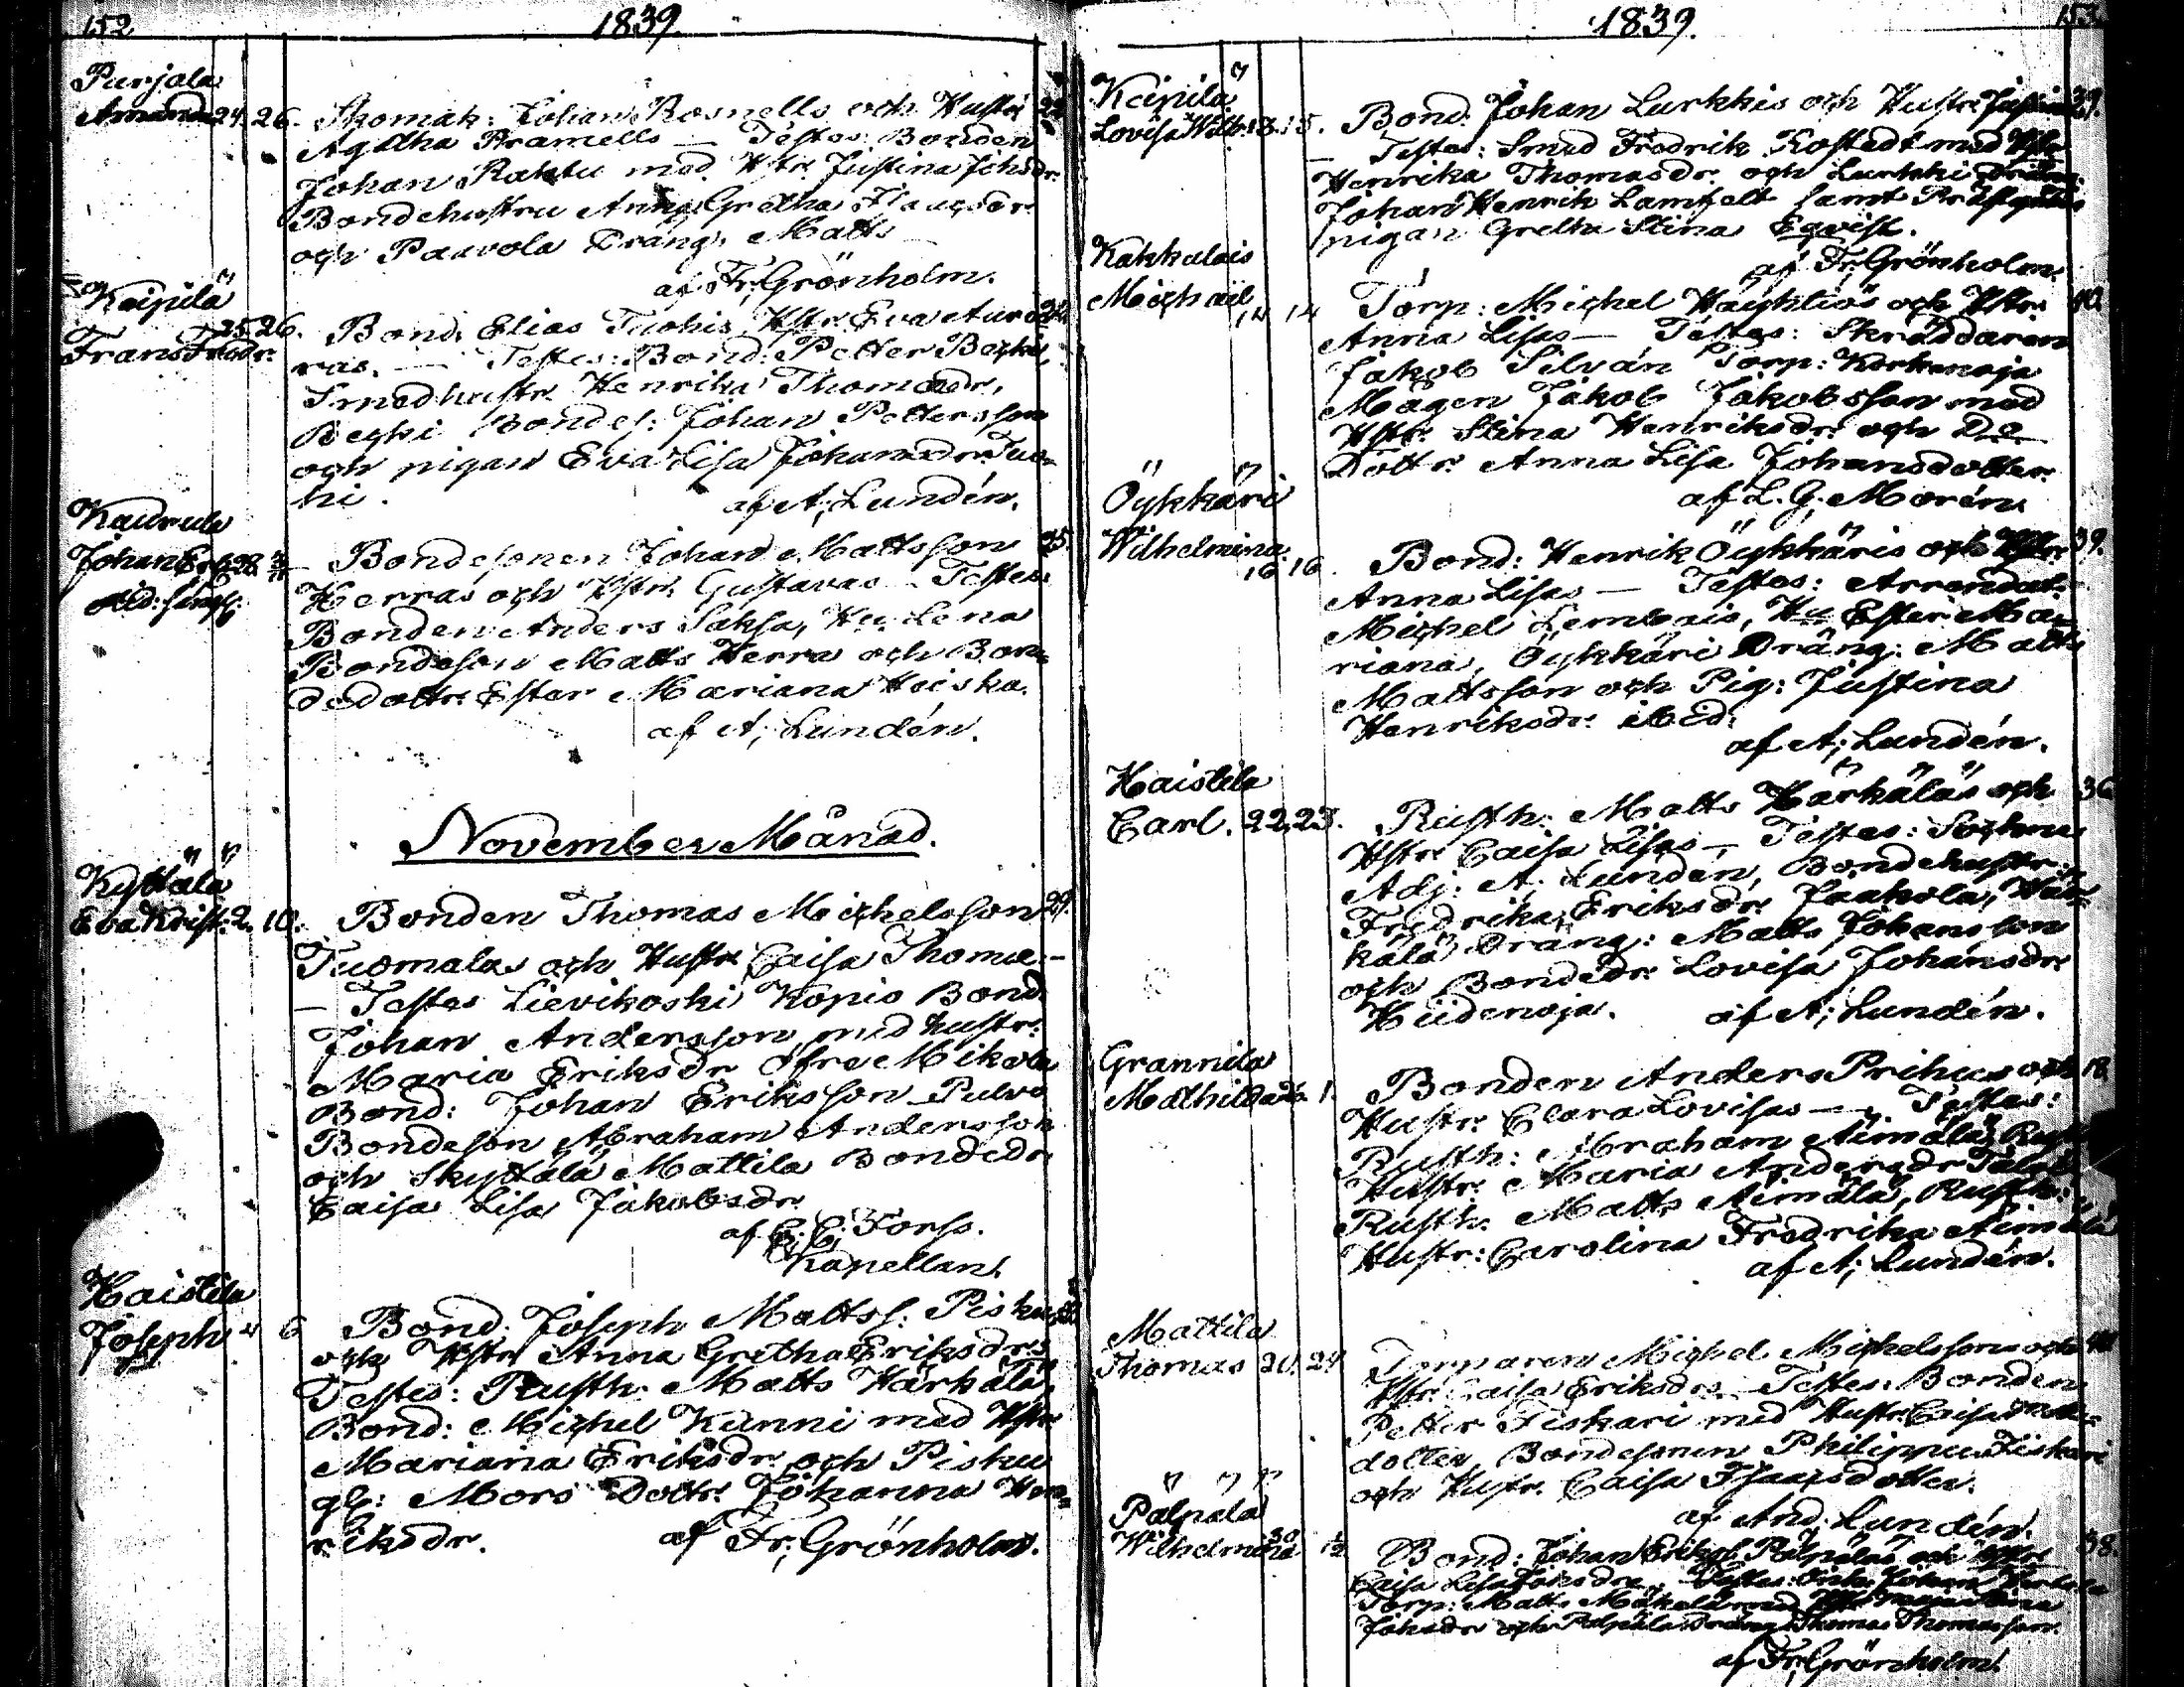 152
1839.
Purjala
Amanda 24. 26. Skomak: Johan Rosnells och Hustr 22
Agatha Framells — Testes: Bonden
Johan Raktu med Hstr Justina Johsdr.
Bondehustru Anna Gretha
och Paavola Dräng: Matts
af Fr; Grönholm.
Keipilä
Frans Fredr: 25. 26. Bond: Elias Tuohis, Hstr Eva Auro
ras. — Testes: Bond: Petter Becki
Smedhustr. Henrika Thomædr,
Becki Bondes: Johan Pettersson
och pigan Eva Lisa Johansdr. Tuo-
hi. af A; Lundén.
Kaurula
Johan Er 28 3/11 Bondesonen Johan Mattsson 25
Herras och Hstr; Gustavas Testes:
Bonden Anders Saksa, Hu. Lena
Bondeson Matts Herra och Bon-
dedottr. Ester Mariana Heiska.
af A; Lundén.
November Månad.
Kyttälä
Eva Krist: 2. 10. Bonden Thomas Michelsson 29.
Tuomalas och Hustr Caisa Thomæ.
— Testes Lievikoski Kopio Bond.
Johan Andersson med hustr.
Maria Eriksdr. Ofre Mikola
Bond: Johan Eriksson Pulvo
Bondeson Abraham Andersson
och Skyttälä Mattila Bondedr.
Caisa Lisa Jakobsdr.
af C. C. Forss.
Kapellan.
Haistila
Joseph 4 6 Bond. Joseph Mattss: Pisku
och Hstr Anna Gretha Eriksdrs
Testes: Rusth. Matts Härkälä,
Bond: Michel Kunni med Hstr
Mariana Eriksdr och Pisku
gl: Mors Dottr. Johanna Hen-
riksdr. af Fr; Grönholm.
1839.
153.
Keipilä
Lovisa Wilh: 13. 15. Bond. Johan Lurkkis och Hustr: Justinas 39.
— Testes: Smed Fredrik Rostedt med Hstr
Henrika Thomasdr. och Lurkki Dräng
Johan Henrik Lamfelt samt Prästgårds
pigan Gretha Stina Eqvist.
af Fr; Grönholm.
Kakkulais
Michael 14 14 Torp: Michel Häyhtiös och Hstr. 40.
Anna Lisas — Testes: Skräddaren
Jakob Silván Torp: Korkenoja
Mågen Jakob Jakobsson med
Hstr. Stina Henriksdr. och Do
Dottr. Anna Lisa Johansdotter.
af L. G. Morén.
Öykkäri
Wilhelmina. 16 16. Bond: Henrik Öykkäris och Hstr: 39.
Anna Lisas — Testes: Arrendat.
Michel Lembois, Hu Ester Ma-
riana, Öykkäri Dräng: Matts
Mattsson och Pig: Justina
Henriksdr. ibid.
af A; Lundén.
Haistila
Carl. 22. 23. Rusth: Matts Härkäläs och 36
Hstr. Caisa Lisas — Testes: Sockne
Adj: A. Lundén, Bondehustr.
Fredrika Eriksdr. Jaakola, Här-
kälä Dräng: Matts Johansson
och Bondedr. Lovisa Johansdr.
Hiidenoja. af A; Lundén.
Grannila
Mathilda 26. 1. Bonden Anders Prihus och 18.
Hustr. Clara Lovisas — Testes:
Rusth: Abraham Äimälä, Rusth
Hustr. Maria Andersdr
Rusth. Matts Äimälä, Rusth:
Hustr: Carolina Fredrika Äimälä
af A; Lundén.
Mattila
Thomas 20. 24 Torparen Michel Michelssons och 41
Hstr: Caisa Eriksdrs. — Testes: Bonden
Petter Fiskari med Hustr. Caisa
dotter, Bondesonen Philippus Fiskari
och Hustr. Caisa Isaacsdotter.
af And. Lundén.
Pälpälä
Wilhelmina 30 1/2 Bond: Johan Eriks: Pälpäläs och Hstr 38.
Caisa Lisa Johsdrs. Testes: Johan
Torp: Matts Mäkelä med Hstr Maria Stina
Johsdr och Pälpälä Dräng Thomas Thomasson.
af Fr; Grönholm.